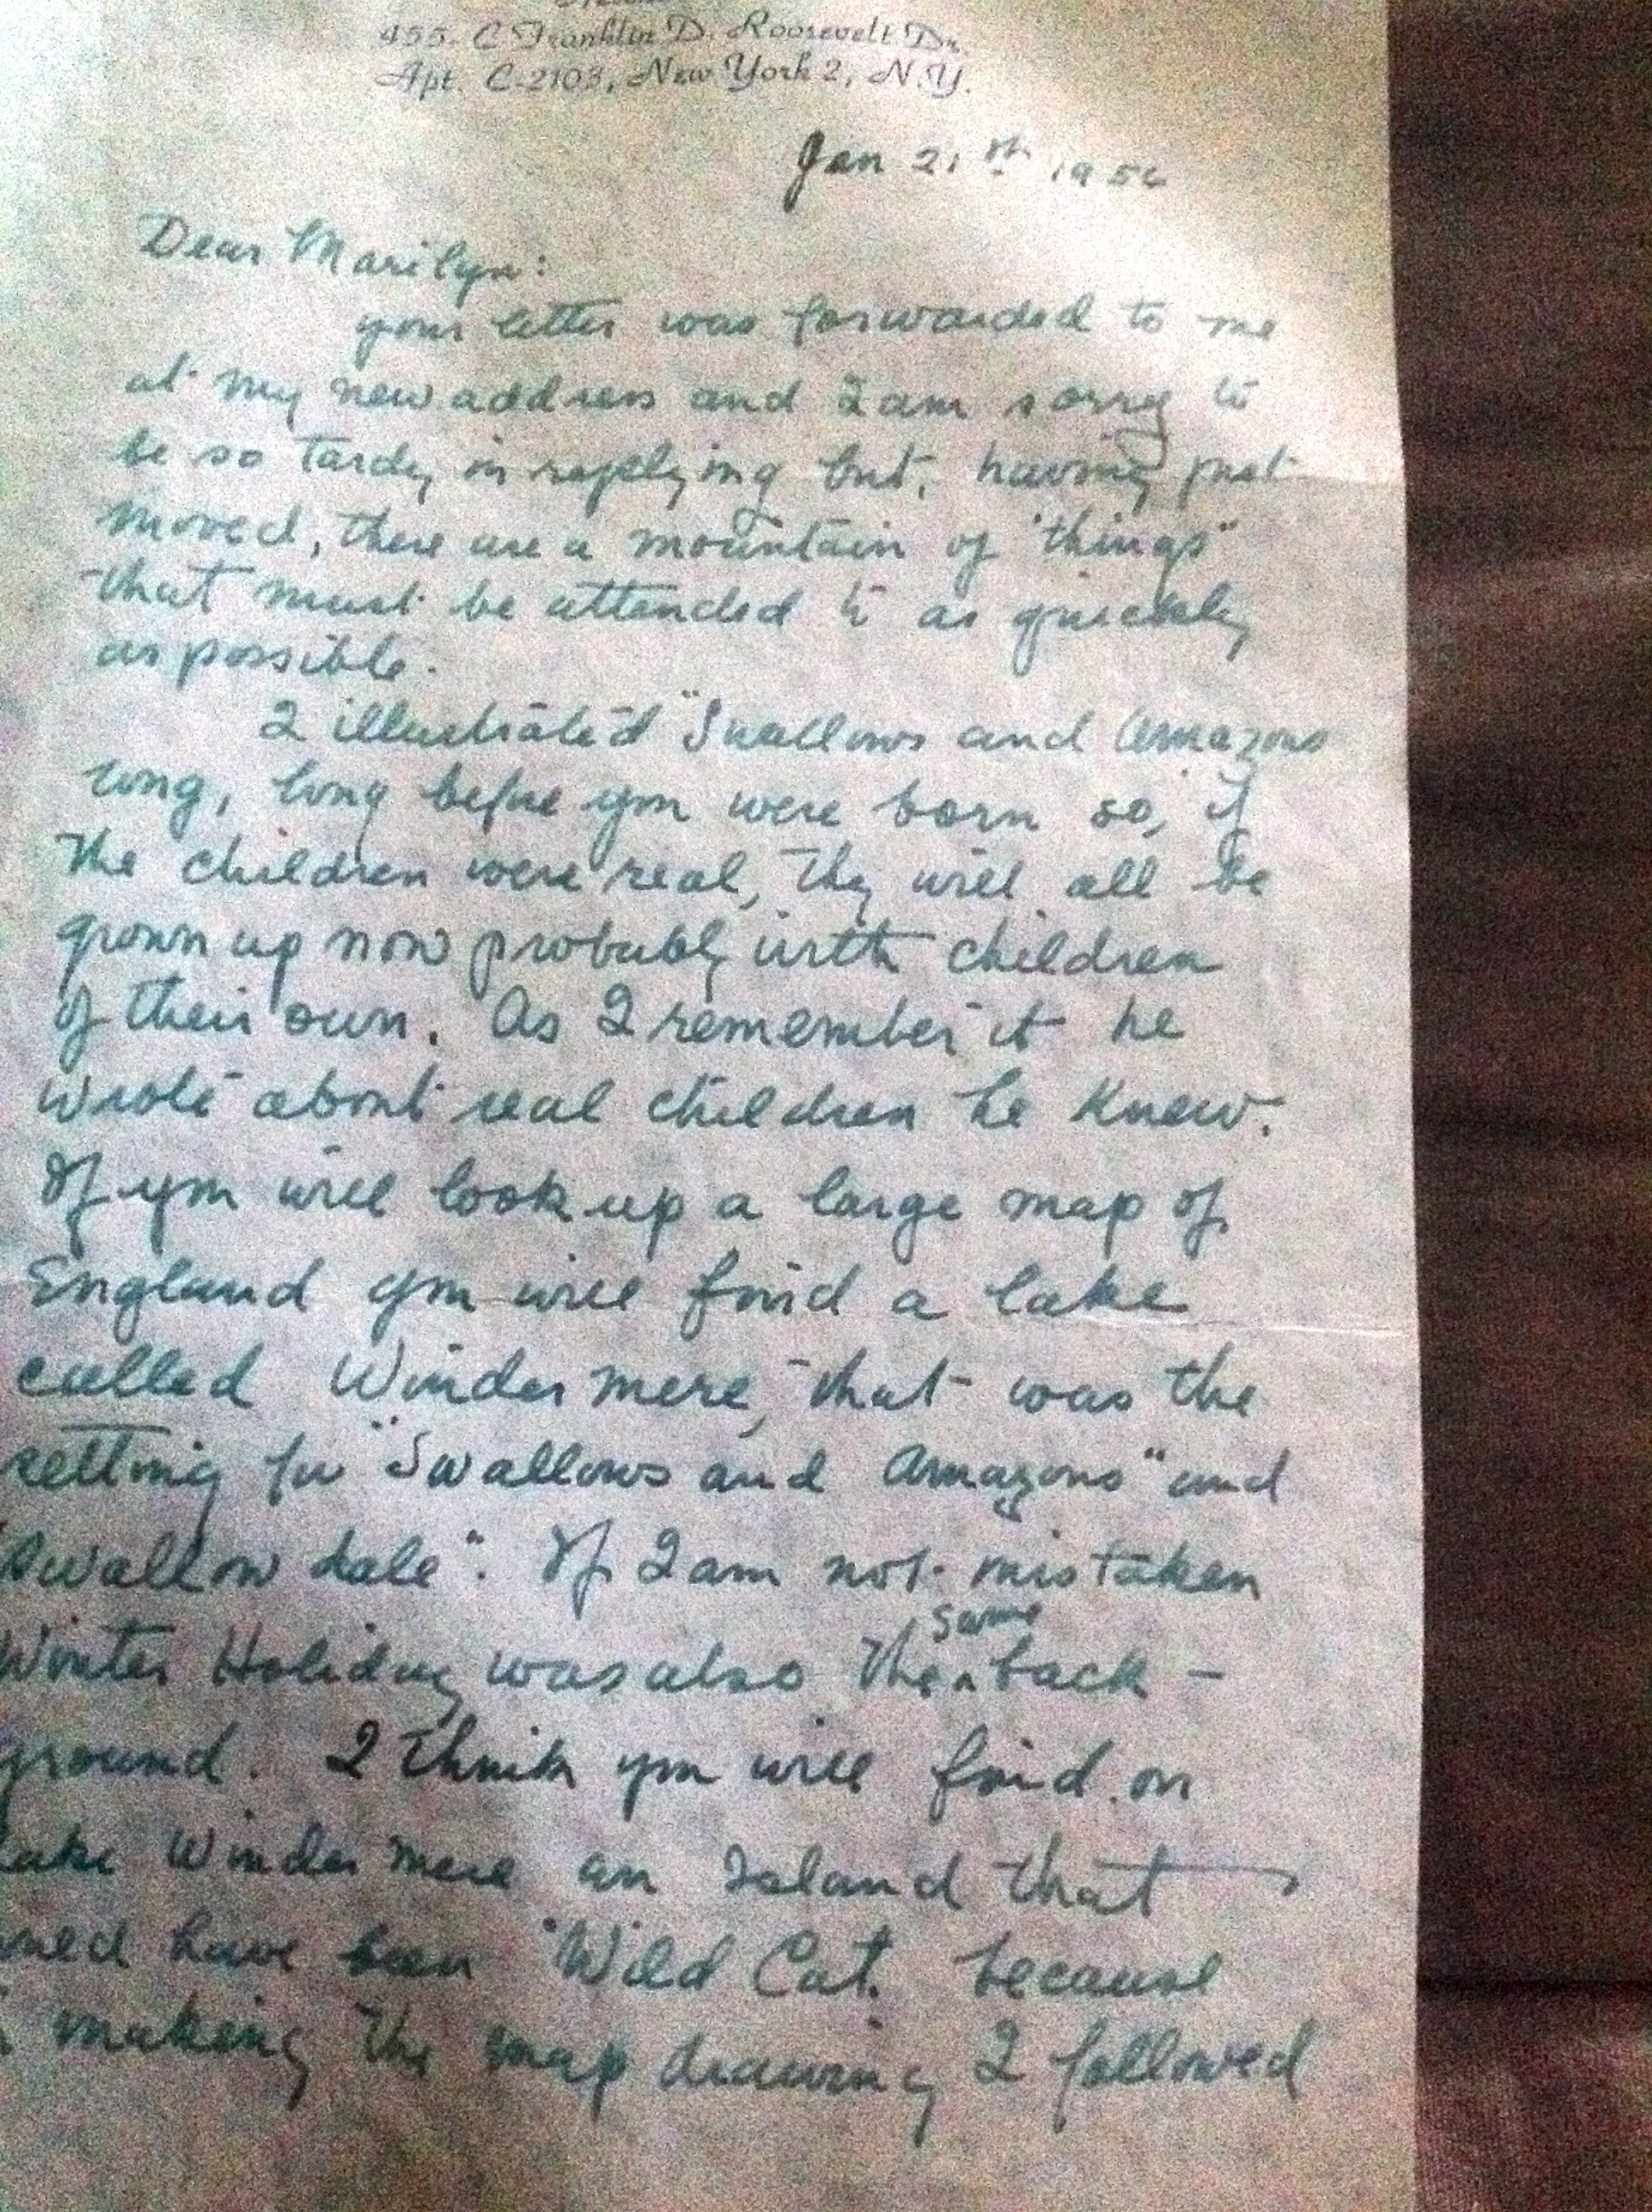 455. C Franklin D. Roosevelt Dr.
Apt. C-2103, New York 2, N.Y.
Jan 21th 1956
Dear Marilyn:
your letter was forwarded to me
at my new address and I am sorry to
be so tardy in replying but, having just
moved, there are a mountain of "things"
that must be attended to as quickly
as possible.
I illustrated "Swallows and Amazons
long, long before you were born so, if
the children were real, they will all be
grown up now probably with children
of their own. As I remember it he
wrote about real children he knew.
If you will look up a large map of
England you will find a lake
called Windermere, that was the
setting for "Swallows and Amazons" and
"Swallowdale". If I am not mistaken
Winter Holiday was also the same back-
ground. I think you will find on
Lake Windermere an Island that
have been "Wild Cat. because
making the map drawing I followed